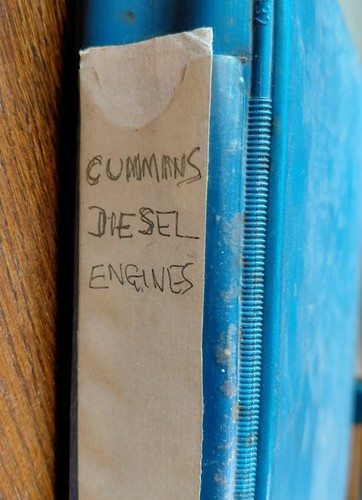 CUMMANS
DIESEL
ENGINES